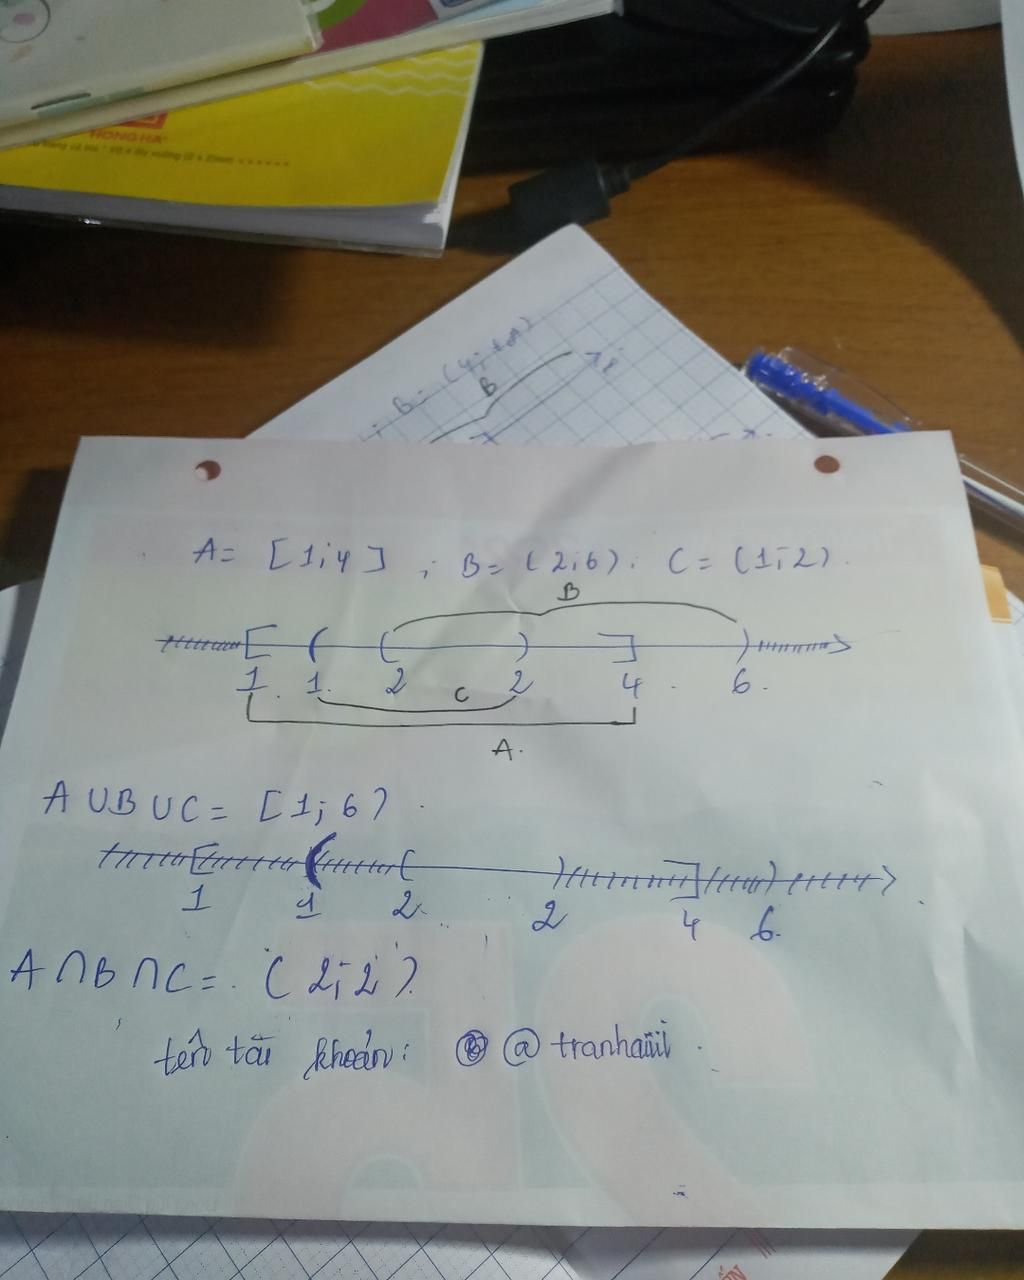 HONG HA
B = (4; +∞)
B
A = [1;4] ; B = (2;6); C = (1;2).
B
1 1 2 2 4 6
C
A.
A∪B∪C = [1;6)
1 1 2 2 4 6
A∩B∩C = (2;2)
tên tài khoản: @tranhaiii